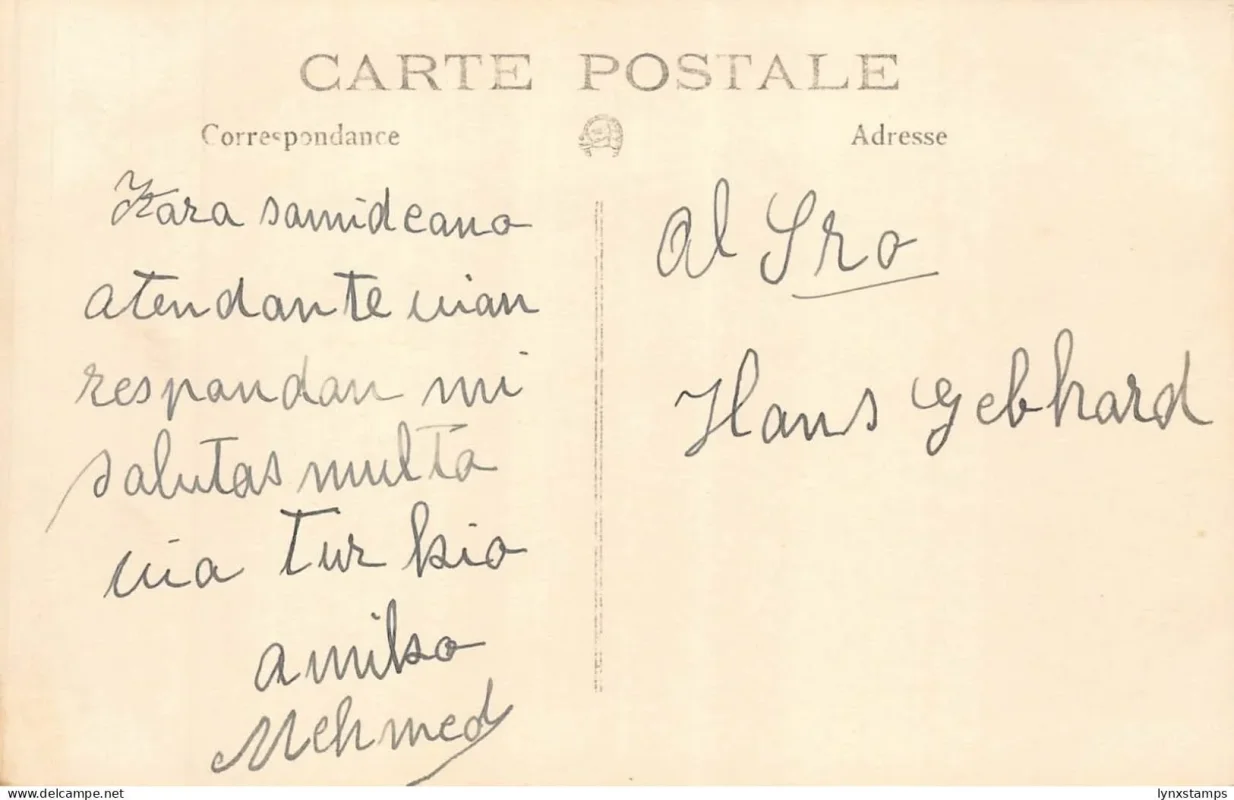 CARTE POSTALE
Correspondance
Adresse
Kara samideano
atendante vian
respondan mi
salutas multa
via Turkio
amiko
Mehmed
Al Sro
Hans Gebhard
lynxstamps